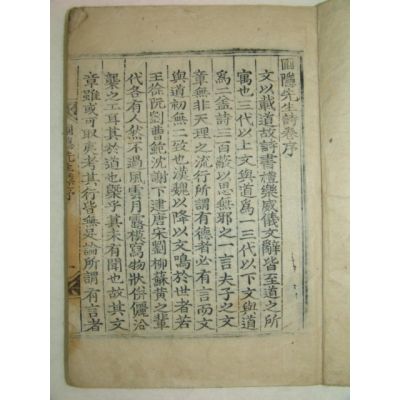 圃隱先生詩卷序
文以載道故詩書禮樂威儀文辭皆至道之所
寓也三代以上文與道爲一三代以下文與道
爲二盖詩三百蔽以思無邪之一言夫子之文
章無非天理之流行所謂有德者必有言而文
與道初無二致也漢魏以降以文鳴於世者若
王徐阮劉曹鮑沈謝下逮唐宋劉柳蘇黃之輩
代各有人然不過風雲月露模寫物狀俳儷沿
襲之工耳其於道也槩乎其未有聞也故其文
章雖或可取夷考其行皆無足論所謂有言者
先生集序